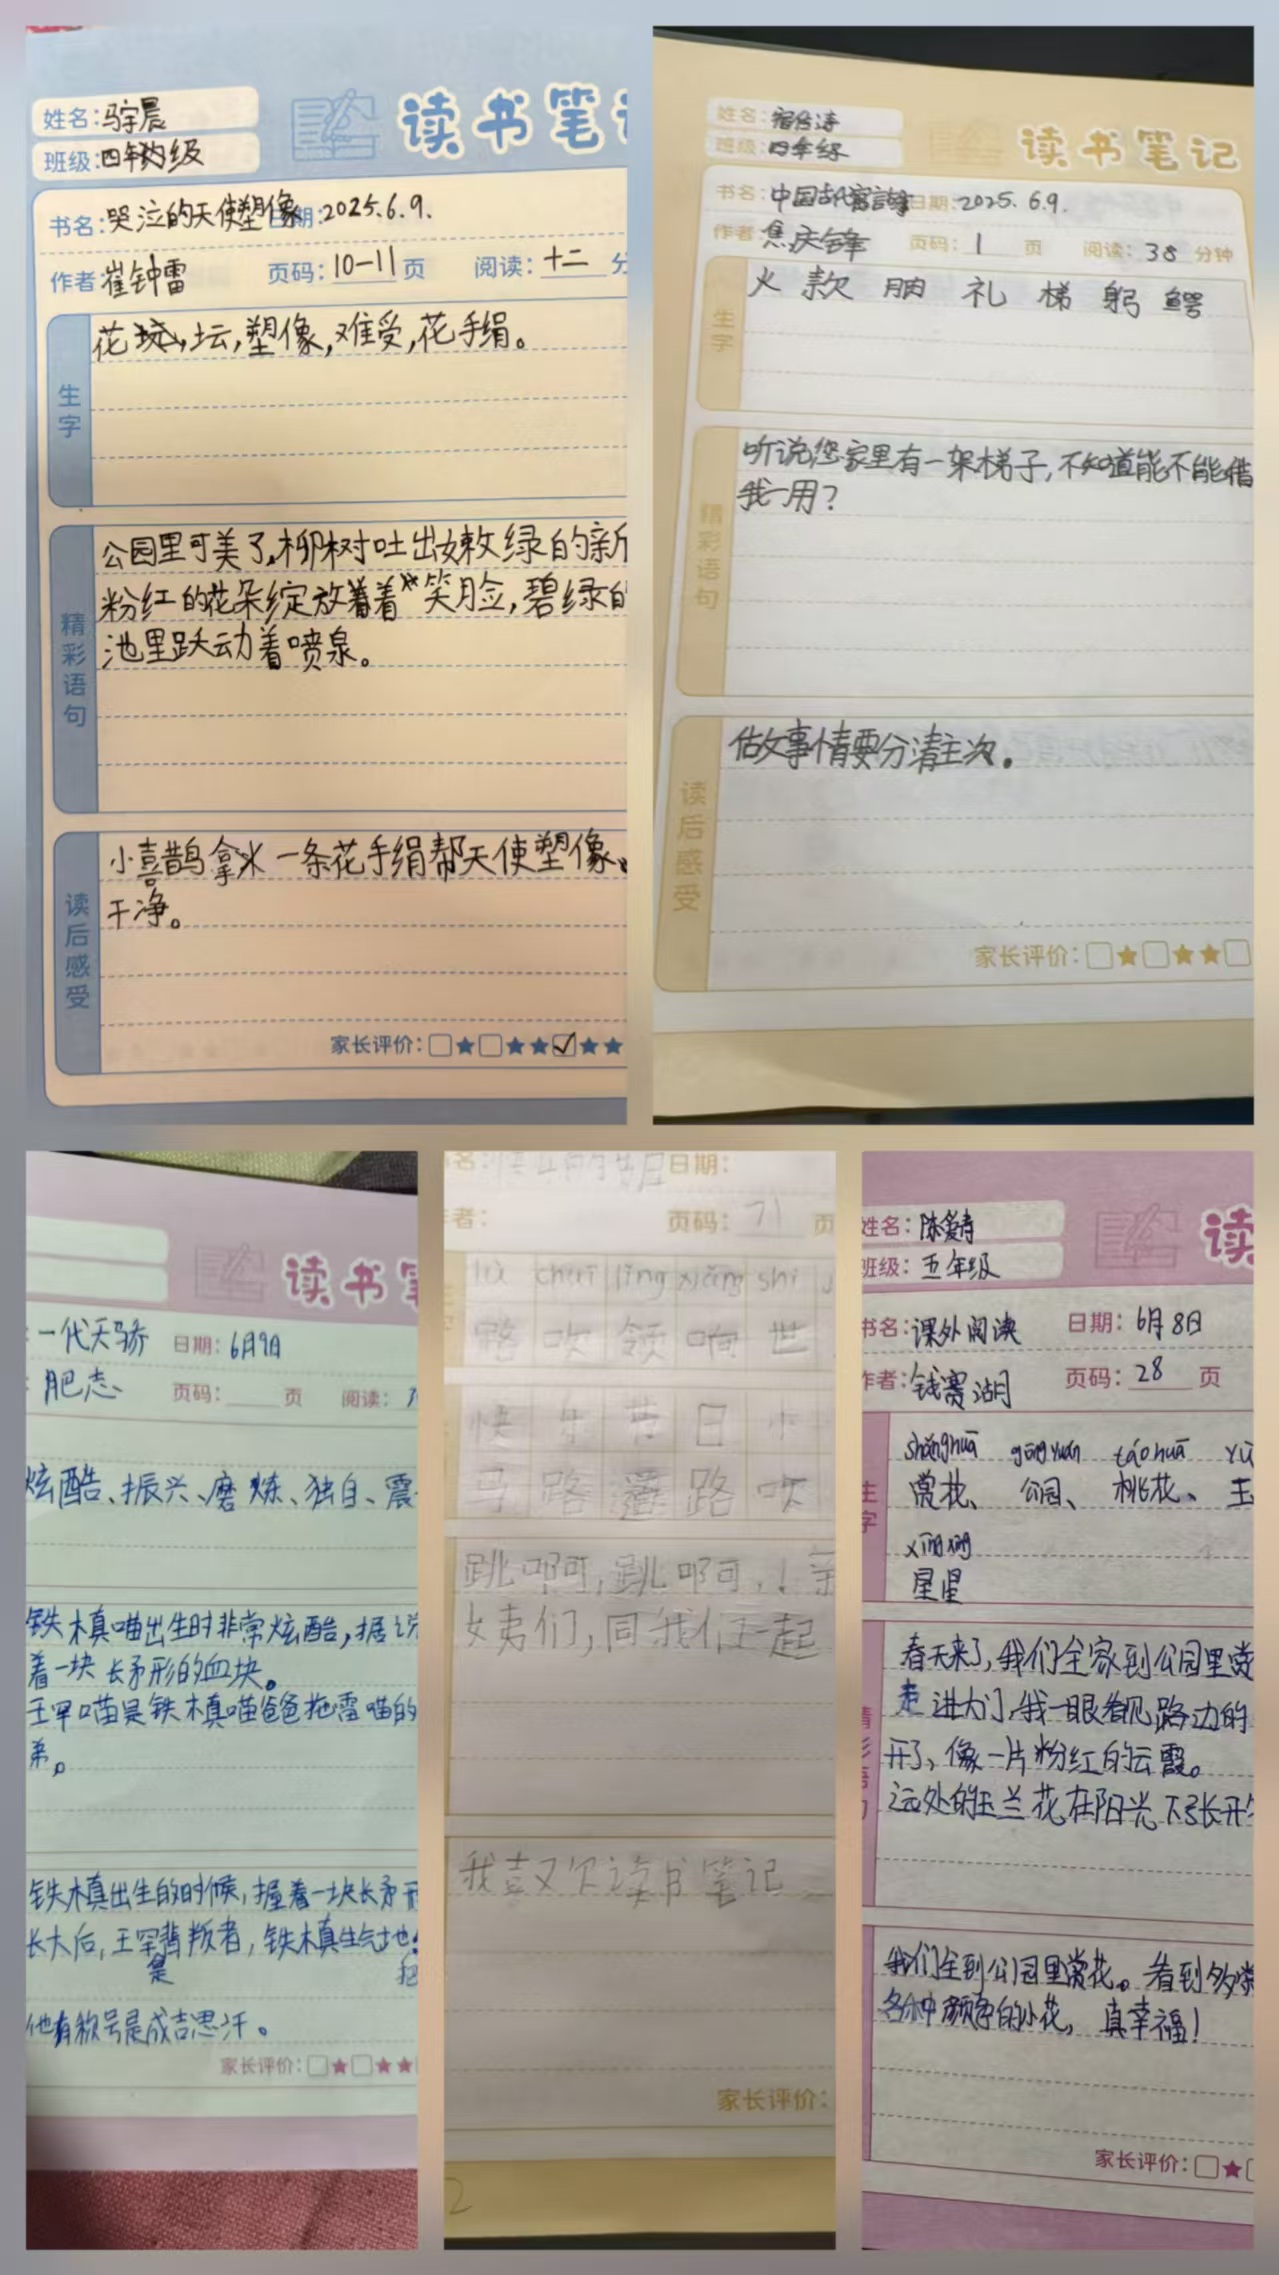 姓名:马宇晨
班级:四年级
读书笔
书名:哭泣的天使塑像 日期:2025.6.9.
作者 崔钟雷 页码:10-11页 阅读:十二 分
生字
花坛,塑像,难受,花手绢。
精彩语句
公园里可美了,柳树吐出嫩绿的新
粉红的花朵绽放着笑脸,碧绿的
池里跃动着喷泉。
读后感受
小喜鹊拿 一条花手绢帮天使塑像
干净。
家长评价:□★□★★☑★★
姓名:
班级:四年级
读书笔记
书名:中国古代寓言 日期:2025.6.9.
作者:焦庆锋 页码:1 页 阅读:38 分钟
生字
火 款 朋 礼 梯 躬 鳄
精彩语句
听说您家里有一架梯子,不知道能不能借
我一用?
读后感受
做事情要分清主次。
家长评价:□★□★★□
读书笔
一代天骄 日期:6月9日
肥志 页码: 页 阅读:
炫酷、振兴、磨炼、独自、震
铁木真喵出生时非常炫酷,据说
着一块长矛形的血块。
王罕喵是铁木真喵爸爸 喵的
弟。
铁木真出生的时候,握着一块长矛形
长大后,王罕背叛者,铁木真生气地
是
他有称号是成吉思汗。
家长评价:□★□★★
名: 日期:
者: 页码:71 页
lù chuī lǐng xiǎng shì
路 吹 领 响 世
快 乐 节 日 小
马 路 道 路 吹
跳啊,跳啊,!亲
姨们,同我们一起
我喜欢读书笔记
家长评价:
2
姓名:陈爱
班级:五年级
读
书名:课外阅读 日期:6月8日
作者:钱赛湖 页码:28 页
生字
shǎnghuā gōngyuán táohuā yù
赏花、 公园、 桃花、 玉
星星
春天来了,我们全家到公园里赏
走进大门,我一眼看见路边的
开了,像一片粉红的云霞。
远处的玉兰花在阳光下张开
我们全到公园里赏花。看到多
各种颜色的小花,真幸福!
家长评价:□★